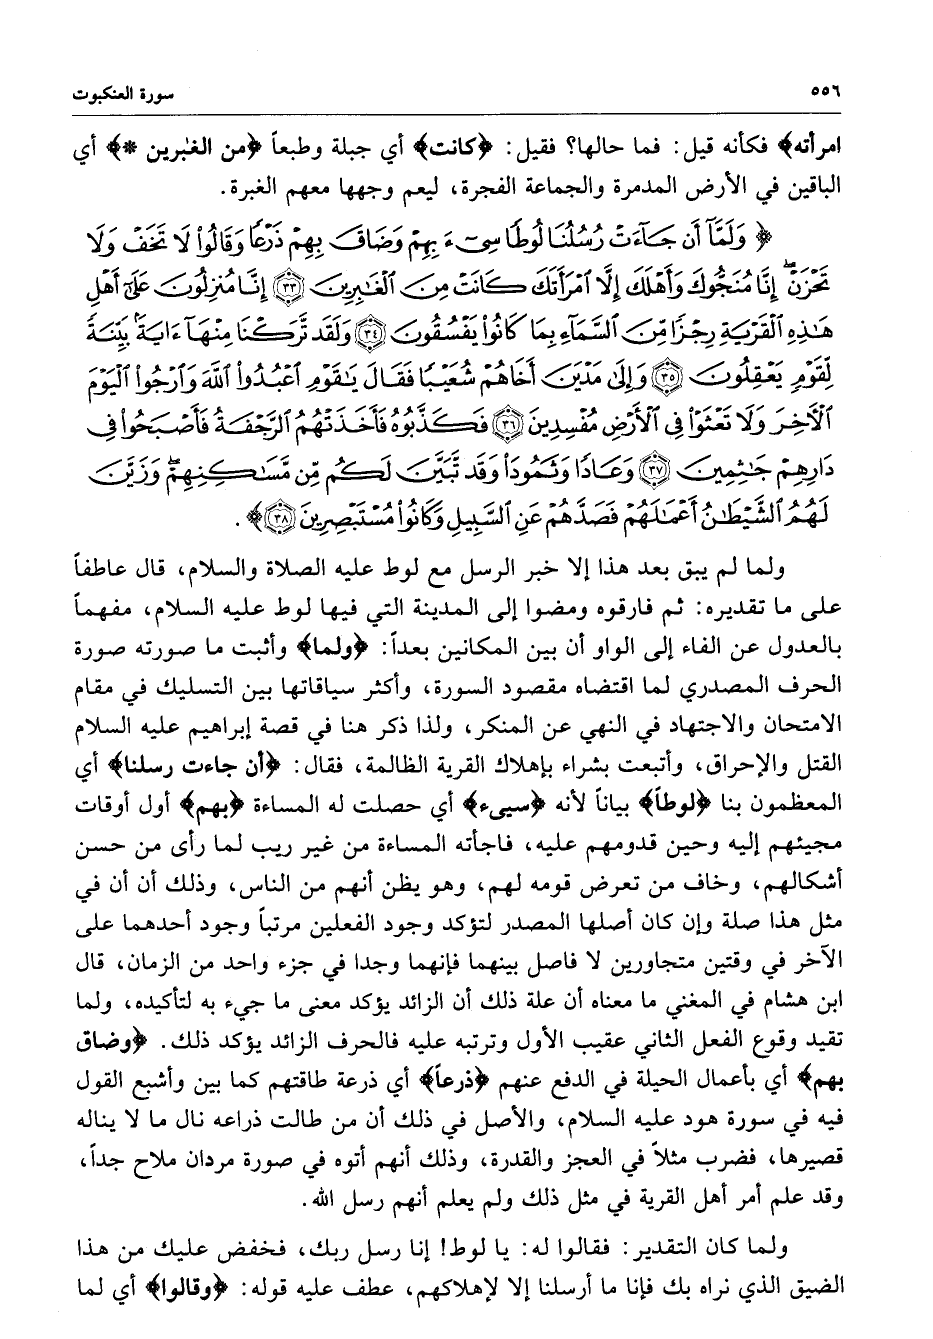 ٥٥٦ سورة العنكبوت
امرأته﴾ فكأنه قيل: فما حالها؟ فقيل: ﴿كانت﴾ أي جبلة وطبعاً ﴿من الغٰبرين *﴾ أي
الباقين في الأرض المدمرة والجماعة الفجرة، ليعم وجهها معهم الغبرة.
﴿ وَلَمَّآ أَن جَآءَتْ رُسُلُنَا لُوطًا سِىٓءَ بِهِمْ وَضَاقَ بِهِمْ ذَرْعًا وَقَالُوا۟ لَا تَخَفْ وَلَا
تَحْزَنْ ۖ إِنَّا مُنَجُّوكَ وَأَهْلَكَ إِلَّا ٱمْرَأَتَكَ كَانَتْ مِنَ ٱلْغَٰبِرِينَ ﴿٣٣﴾ إِنَّا مُنزِلُونَ عَلَىٰٓ أَهْلِ
هَٰذِهِ ٱلْقَرْيَةِ رِجْزًا مِّنَ ٱلسَّمَآءِ بِمَا كَانُوا۟ يَفْسُقُونَ ﴿٣٤﴾ وَلَقَد تَّرَكْنَا مِنْهَآ ءَايَةًۢ بَيِّنَةً
لِّقَوْمٍ يَعْقِلُونَ ﴿٣٥﴾ وَإِلَىٰ مَدْيَنَ أَخَاهُمْ شُعَيْبًا فَقَالَ يَٰقَوْمِ ٱعْبُدُوا۟ ٱللَّهَ وَٱرْجُوا۟ ٱلْيَوْمَ
ٱلْءَاخِرَ وَلَا تَعْثَوْا۟ فِى ٱلْأَرْضِ مُفْسِدِينَ ﴿٣٦﴾ فَكَذَّبُوهُ فَأَخَذَتْهُمُ ٱلرَّجْفَةُ فَأَصْبَحُوا۟ فِى
دَارِهِمْ جَٰثِمِينَ ﴿٣٧﴾ وَعَادًا وَثَمُودَا۟ وَقَد تَّبَيَّنَ لَكُم مِّن مَّسَٰكِنِهِمْ ۖ وَزَيَّنَ
لَهُمُ ٱلشَّيْطَٰنُ أَعْمَٰلَهُمْ فَصَدَّهُمْ عَنِ ٱلسَّبِيلِ وَكَانُوا۟ مُسْتَبْصِرِينَ ﴿٣٨﴾ ﴾.
ولما لم يبق بعد هذا إلا خبر الرسل مع لوط عليه الصلاة والسلام، قال عاطفاً
على ما تقديره: ثم فارقوه ومضوا إلى المدينة التي فيها لوط عليه السلام، مفهماً
بالعدول عن الفاء إلى الواو أن بين المكانين بعداً: ﴿ولما﴾ وأثبت ما صورته صورة
الحرف المصدري لما اقتضاه مقصود السورة، وأكثر سياقاتها بين التسليك في مقام
الامتحان والاجتهاد في النهي عن المنكر، ولذا ذكر هنا في قصة إبراهيم عليه السلام
القتل والإحراق، وأتبعت بشراء بإهلاك القرية الظالمة، فقال: ﴿أن جاءت رسلنا﴾ أي
المعظمون بنا ﴿لوطاً﴾ بياناً لأنه ﴿سييء﴾ أي حصلت له المساءة ﴿بهم﴾ أول أوقات
مجيئهم إليه وحين قدومهم عليه، فاجأته المساءة من غير ريب لما رأى من حسن
أشكالهم، وخاف من تعرض قومه لهم، وهو يظن أنهم من الناس، وذلك أن أن في
مثل هذا صلة وإن كان أصلها المصدر لتؤكد وجود الفعلين مرتباً وجود أحدهما على
الآخر في وقتين متجاورين لا فاصل بينهما فإنهما وجدا في جزء واحد من الزمان، قال
ابن هشام في المغني ما معناه أن علة ذلك أن الزائد يؤكد معنى ما جيء به لتأكيده، ولما
تقيد وقوع الفعل الثاني عقيب الأول وترتبه عليه فالحرف الزائد يؤكد ذلك. ﴿وضاق
بهم﴾ أي بأعمال الحيلة في الدفع عنهم ﴿ذرعاً﴾ أي ذرعة طاقتهم كما بين وأشبع القول
فيه في سورة هود عليه السلام، والأصل في ذلك أن من طالت ذراعه نال ما لا يناله
قصيرها، فضرب مثلاً في العجز والقدرة، وذلك أنهم أتوه في صورة مردان ملاح جداً،
وقد علم أمر أهل القرية في مثل ذلك ولم يعلم أنهم رسل الله.
ولما كان التقدير: فقالوا له: يا لوط! إنا رسل ربك، فخفض عليك من هذا
الضيق الذي نراه بك فإنا ما أرسلنا إلا لإهلاكهم، عطف عليه قوله: ﴿وقالوا﴾ أي لما